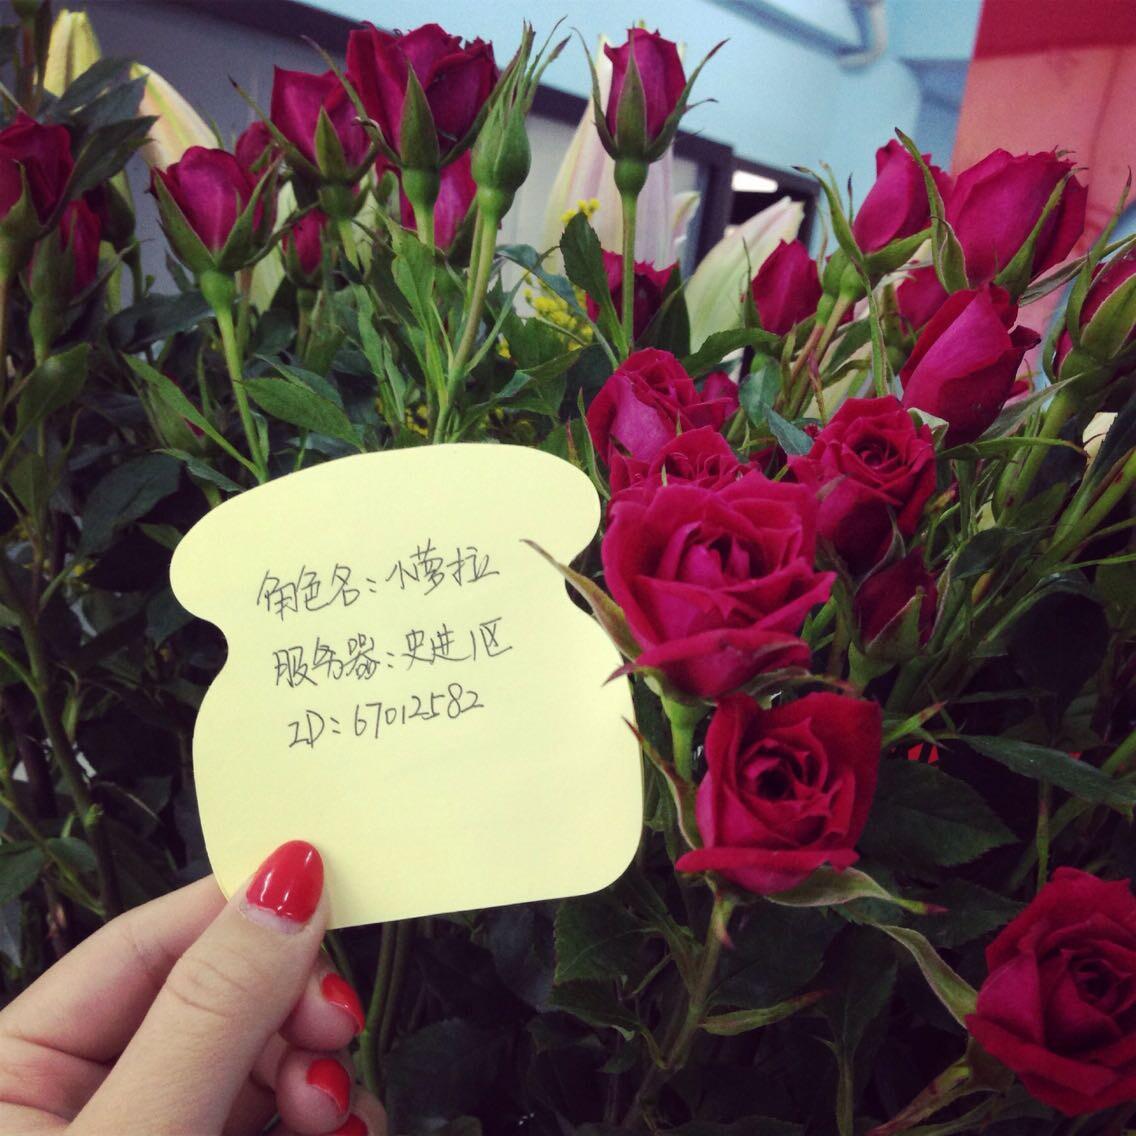 角色名：小萝拉
服务器：史进1区
ID：67012582